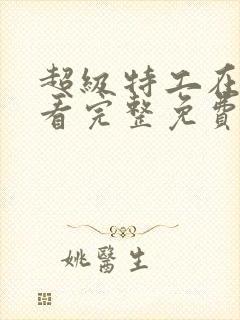 超級特工在
看完整免費
姚醫生